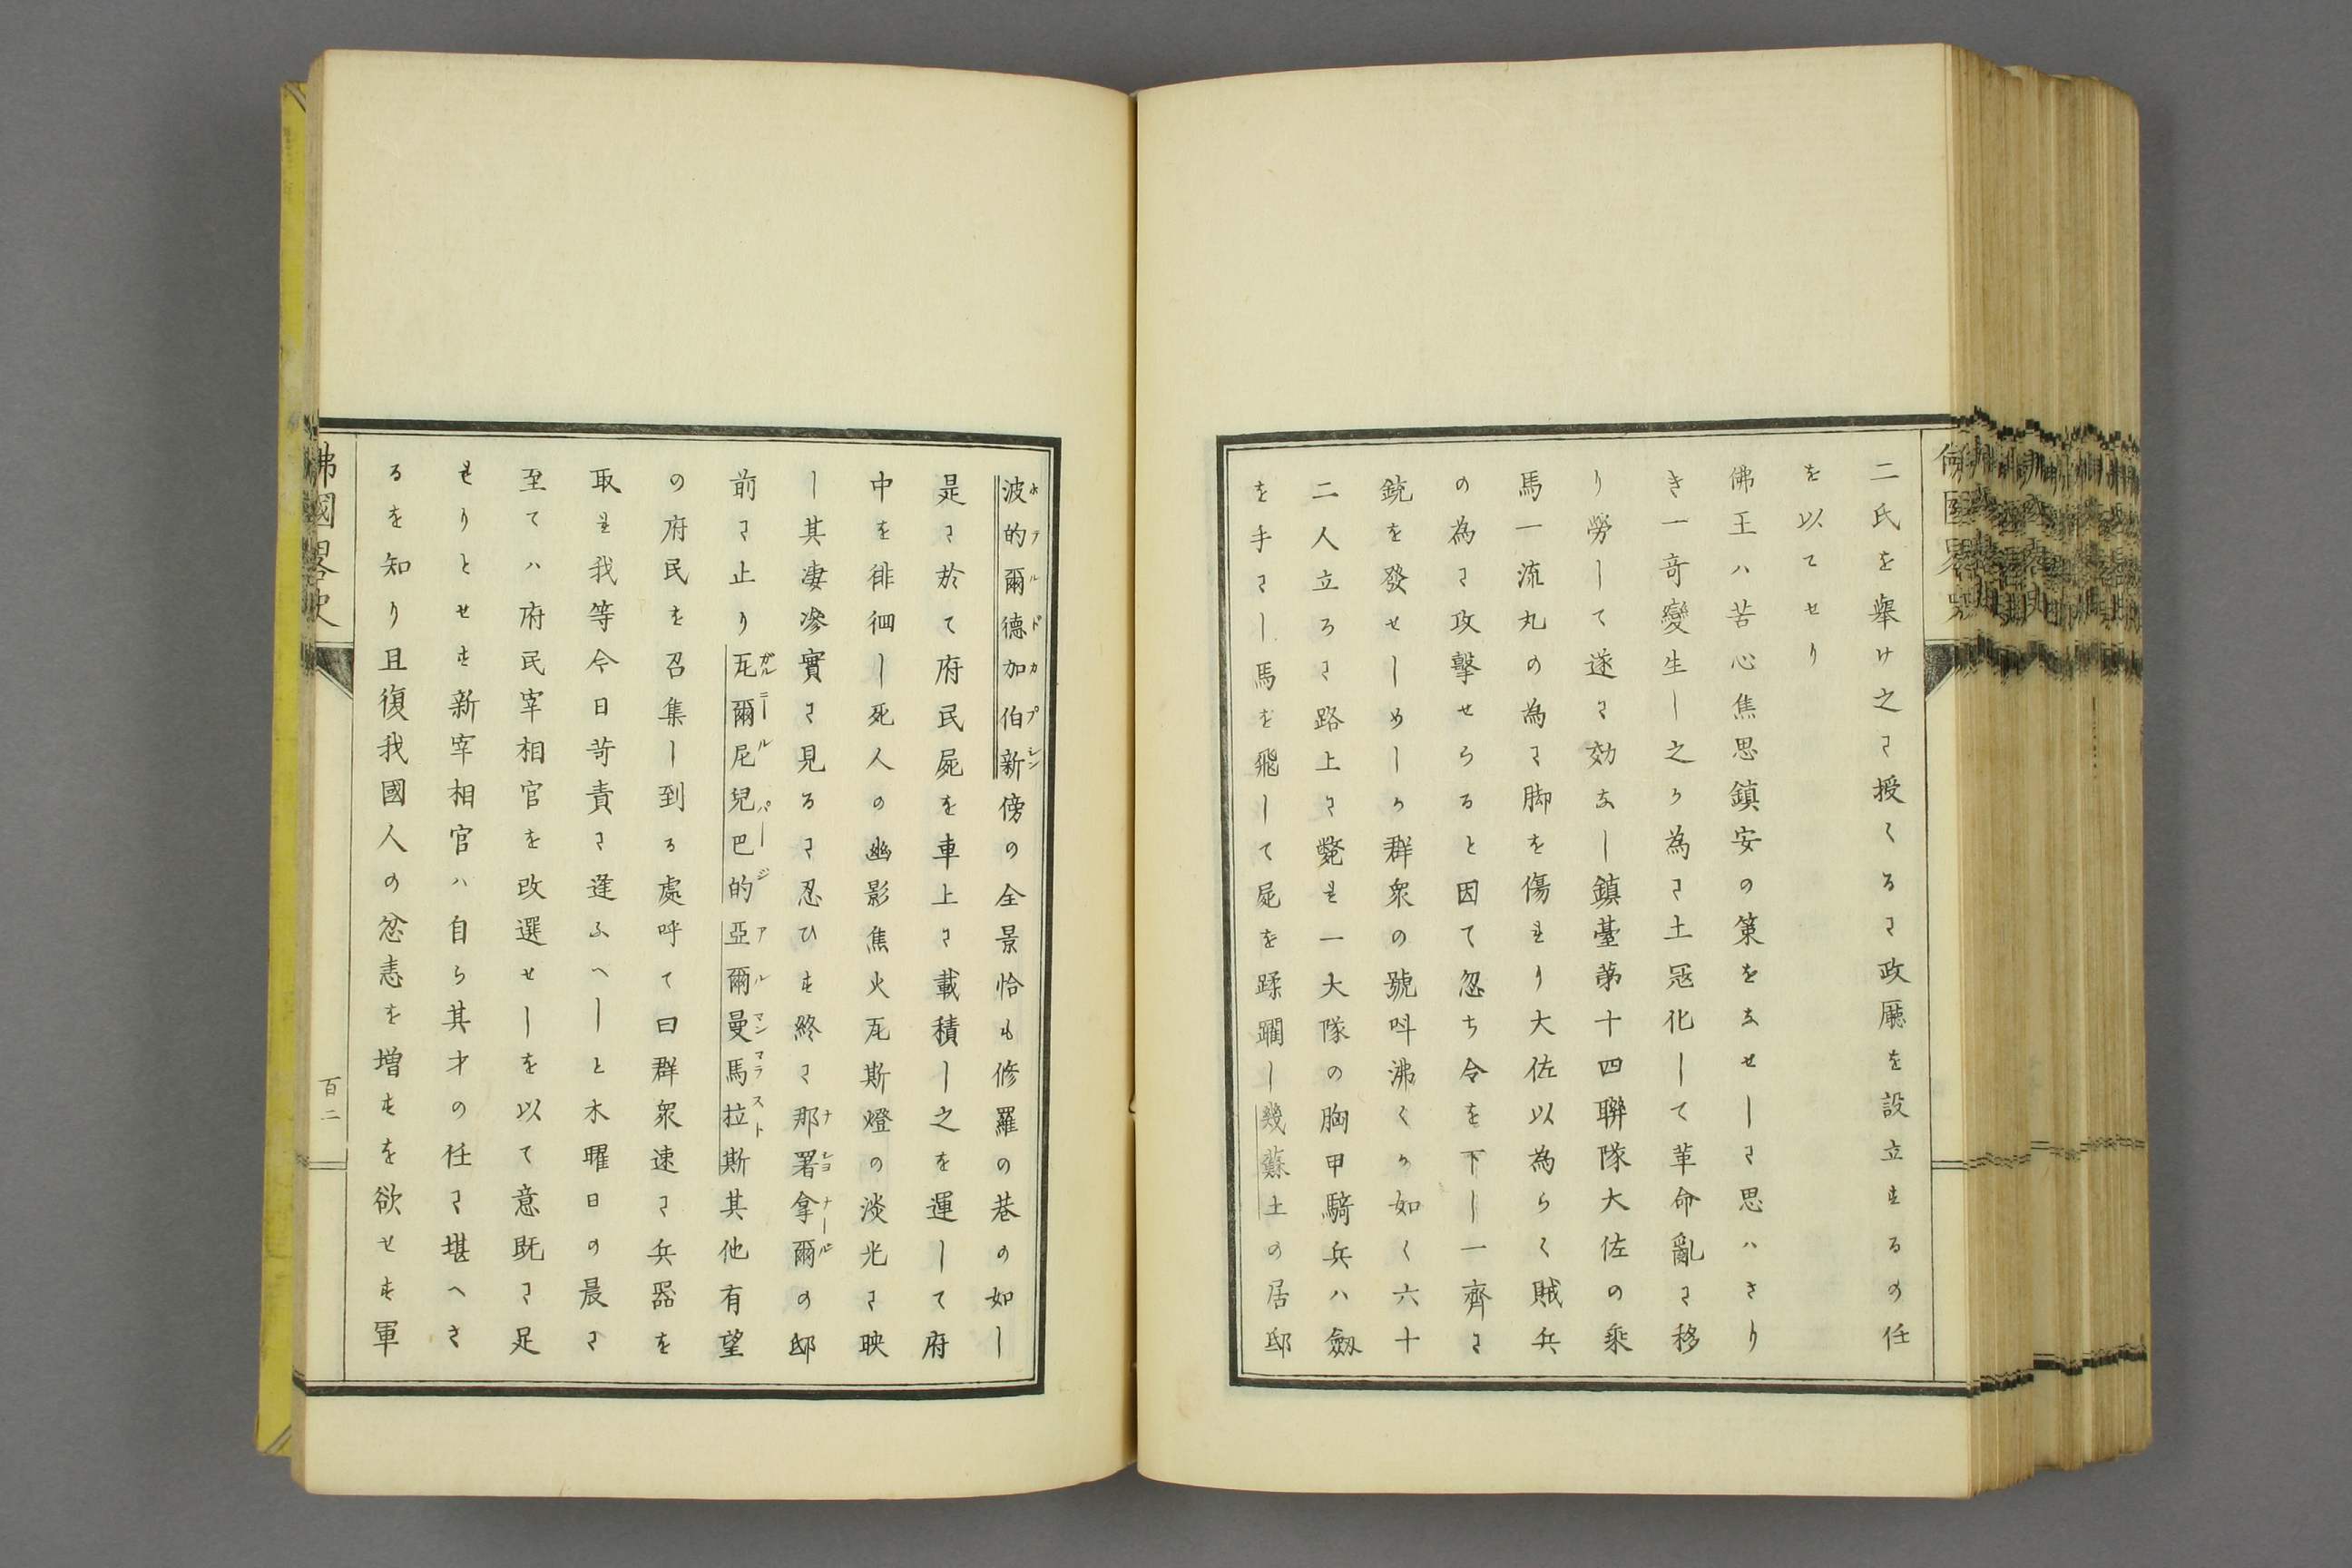 二氏を擧け之に授くるに政廳を設立するの任
を以てせり
佛王ハ苦心焦思鎮安の策をなせしに思ハさり
き一奇變生し之か為に土冦化して革命亂に移
り勞して遂に効なし鎮臺第十四聯隊大佐の乘
馬一流丸の為に脚を傷れり大佐以為らく賊兵
の為に攻擊せらると因て忽ち令を下し一齊に
銃を發せしめしか群衆の號呌沸くか如く六十
二人立ろに路上に斃れ一大隊の胸甲騎兵ハ劔
を手にし馬を飛して屍を蹂躙し幾蘇土の居邸
波的爾德加伯新傍の全景恰も修羅の巷の如し
ホテルドカプシン
是に於て府民屍を車上に載積し之を運して府
中を徘徊し死人の幽影焦火瓦斯燈の淡光に映
し其凄滲實に見るに忍ひす終に那署拿爾の邸
ナショナール
前に止り瓦爾尼兒巴的亞爾曼馬拉斯其他有望
ガルニールパージアルマンマラスト
の府民を召集し到る處呼て曰群衆速に兵器を
取れ我等今日苛責に逢ふへしと木曜日の晨に
至てハ府民宰相官を改選せしを以て意既に足
れりとせす新宰相官ハ自ら其才の任に堪へさ
るを知り且復我國人の忿恚を增すを欲せす軍
佛國畧史
百二